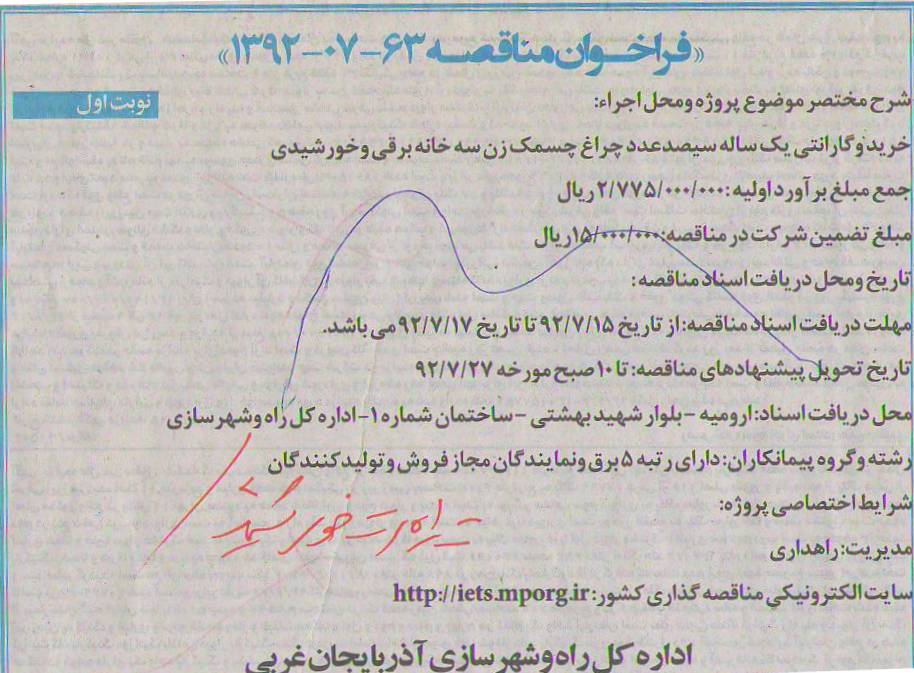 «فراخوان مناقصه ۶۳-۰۷-۱۳۹۲»
نوبت اول
شرح مختصر موضوع پروژه ومحل اجراء:
خرید و گارانتی یک ساله سیصد عدد چراغ چسمک زن سه خانه برقی و خورشیدی
جمع مبلغ برآورد اولیه: ۲/۷۷۵/۰۰۰/۰۰۰ ریال
مبلغ تضمین شرکت در مناقصه: ۱۵/۰۰۰/۰۰۰ ریال
تاریخ ومحل دریافت اسناد مناقصه:
مهلت دریافت اسناد مناقصه: از تاریخ ۹۲/۷/۱۵ تا تاریخ ۹۲/۷/۱۷ می باشد.
تاریخ تحویل پیشنهادهای مناقصه: تا ۱۰ صبح مورخه ۹۲/۷/۲۷
محل دریافت اسناد: ارومیه - بلوار شهید بهشتی - ساختمان شماره ۱- اداره کل راه و شهرسازی
رشته و گروه پیمانکاران: دارای رتبه ۵ برق و نمایندگان مجاز فروش و تولید کنندگان
شرایط اختصاصی پروژه:
مدیریت: راهداری
سایت الکترونیکی مناقصه گذاری کشور: http://iets.mporg.ir
اداره کل راه و شهرسازی آذربایجان غربی